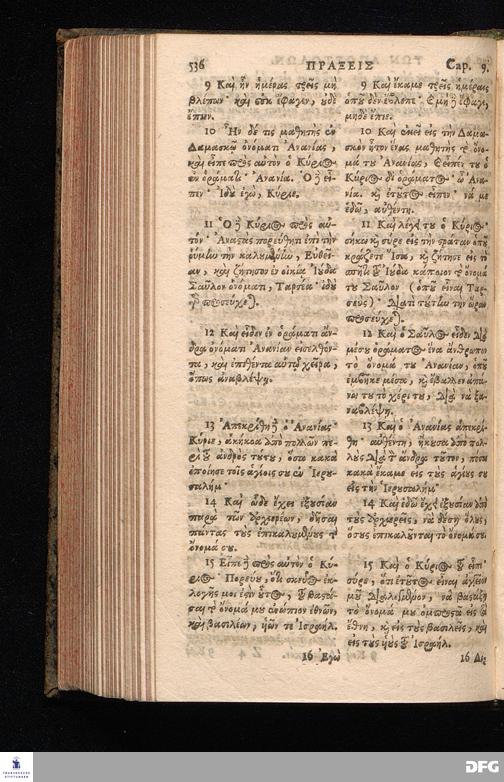 536 ΠΡΑΞΕΙΣ Cap. 9.
9 Καὶ ἦν ἡμέρας τρεῖς μὴ
βλέπων· καὶ οὐκ ἔφαγεν, οὐδὲ
ἔπιεν.
10 Ἦν δέ τις μαθητὴς ἐν
Δαμασκῷ ὀνόματι Ἀνανίας,
καὶ εἶπε πρὸς αὐτὸν ὁ Κύριος
ἐν ὁράματι· Ἀνανία. Ὁ δὲ εἶ-
πεν· Ἰδοὺ ἐγὼ, Κύριε.
11 Ὁ δὲ Κύριος πρὸς αὐ-
τόν· Ἀναστὰς πορεύθητι ἐπὶ τὴν
ῥύμην τὴν καλουμένην, Εὐθεῖ-
αν, καὶ ζήτησον ἐν οἰκίᾳ Ἰούδα
Σαῦλον ὀνόματι, Ταρσέα· ἰδοὺ
γὰρ προσεύχεται.
12 Καὶ εἶδεν ἐν ὁράματι ἄν-
δρα ὀνόματι Ἀνανίαν εἰσελθόν-
τα, καὶ ἐπιθέντα αὐτῷ χεῖρα,
ὅπως ἀναβλέψῃ.
13 Ἀπεκρίθη δὲ ὁ Ἀνανίας·
Κύριε, ἀκήκοα ἀπὸ πολλῶν πε-
ρὶ τοῦ ἀνδρὸς τούτου, ὅσα κακὰ
ἐποίησε τοῖς ἁγίοις σου ἐν Ἱερου-
σαλήμ·
14 Καὶ ὧδε ἔχει ἐξουσίαν
παρὰ τῶν ἀρχιερέων, δῆσαι
πάντας τοὺς ἐπικαλουμένους τὸ
ὄνομά σου.
15 Εἶπε δὲ πρὸς αὐτὸν ὁ Κύ-
ριος· Πορεύου, ὅτι σκεῦος ἐκ-
λογῆς μοι ἐστὶν οὗτος, τοῦ βαστά-
σαι τὸ ὄνομά μου ἐνώπιον ἐθνῶν,
καὶ βασιλέων, υἱῶν τε Ἰσραήλ.
16 Ἐγὼ
9 Καὶ ἔκαμε τρεῖς ἡμέραις
ὁποῦ δὲν ἔβλεπε· καὶ μὴ ἔφαγε,
μηδὲ ἔπιε.
10 Καὶ ἐκεῖ εἰς τὴν Δαμα-
σκὸν ἦτον ἕνας μαθητὴς τὸ ὄνο-
μά του Ἀνανίας, καὶ εἶπέν του ὁ
Κύριος δι' ὁράματος· ὦ Ἀνα-
νία. καὶ ἐτοῦτος εἶπεν· νά με
ἐδῶ, αὐθέντη.
11 Καὶ λέγει του ὁ Κύριος·
σήκω καὶ σύρε εἰς τὴν στράταν ὁποῦ
κράζεται ἴσια, καὶ ζήτησε εἰς τὸ
σπῆτι τοῦ Ἰούδα κάποιον τὸ ὄνομά
του Σαῦλον (ὁποῦ εἶναι Ταρ-
σεύς)· διατὶ τούτην τὴν ὥραν
προσεύχεται.
12 Καὶ ὁ Σαῦλος εἶδεν διὰ
μέσου ὁράματος ἕνα ἄνθρωπον
τὸ ὄνομά του Ἀνανίαν, ὁποῦ
ἐμβῆκε μέσα, καὶ ἔβαλλεν ἀπά-
νω του τὸ χέρι του, διὰ νὰ ξα-
ναβλέψῃ.
13 Καὶ ὁ Ἀνανίας ἀπεκρί-
θη· αὐθέντη, ἤκουσα ἀπὸ πολ-
λοὺς διὰ τὸν ἄνδρα τοῦτον, πόσα
κακὰ ἔκαμε εἰς τοὺς ἁγίους σου
εἰς τὴν Ἱερουσαλήμ·
14 Καὶ ἐδῶ ἔχει ἐξουσίαν ἀπὸ
τοὺς ἀρχιερεῖς, νὰ δέσῃ ὅλους,
ὅσους ἐπικαλοῦνται τὸ ὄνομά σου.
15 Καὶ ὁ Κύριος τοῦ εἶπε·
σύρε, ὅτι ἐτοῦτος εἶναι ἀγγεῖόν
μου διαλεγμένον, νὰ βαστάξῃ
τὸ ὄνομά μου ὀμπρὸς εἰς τὰ
ἔθνη, καὶ εἰς τοὺς βασιλεῖς, καὶ
εἰς τοὺς υἱοὺς τοῦ Ἰσραήλ.
16 Δια
FRANCKESCHE STIFTUNGEN
DFG